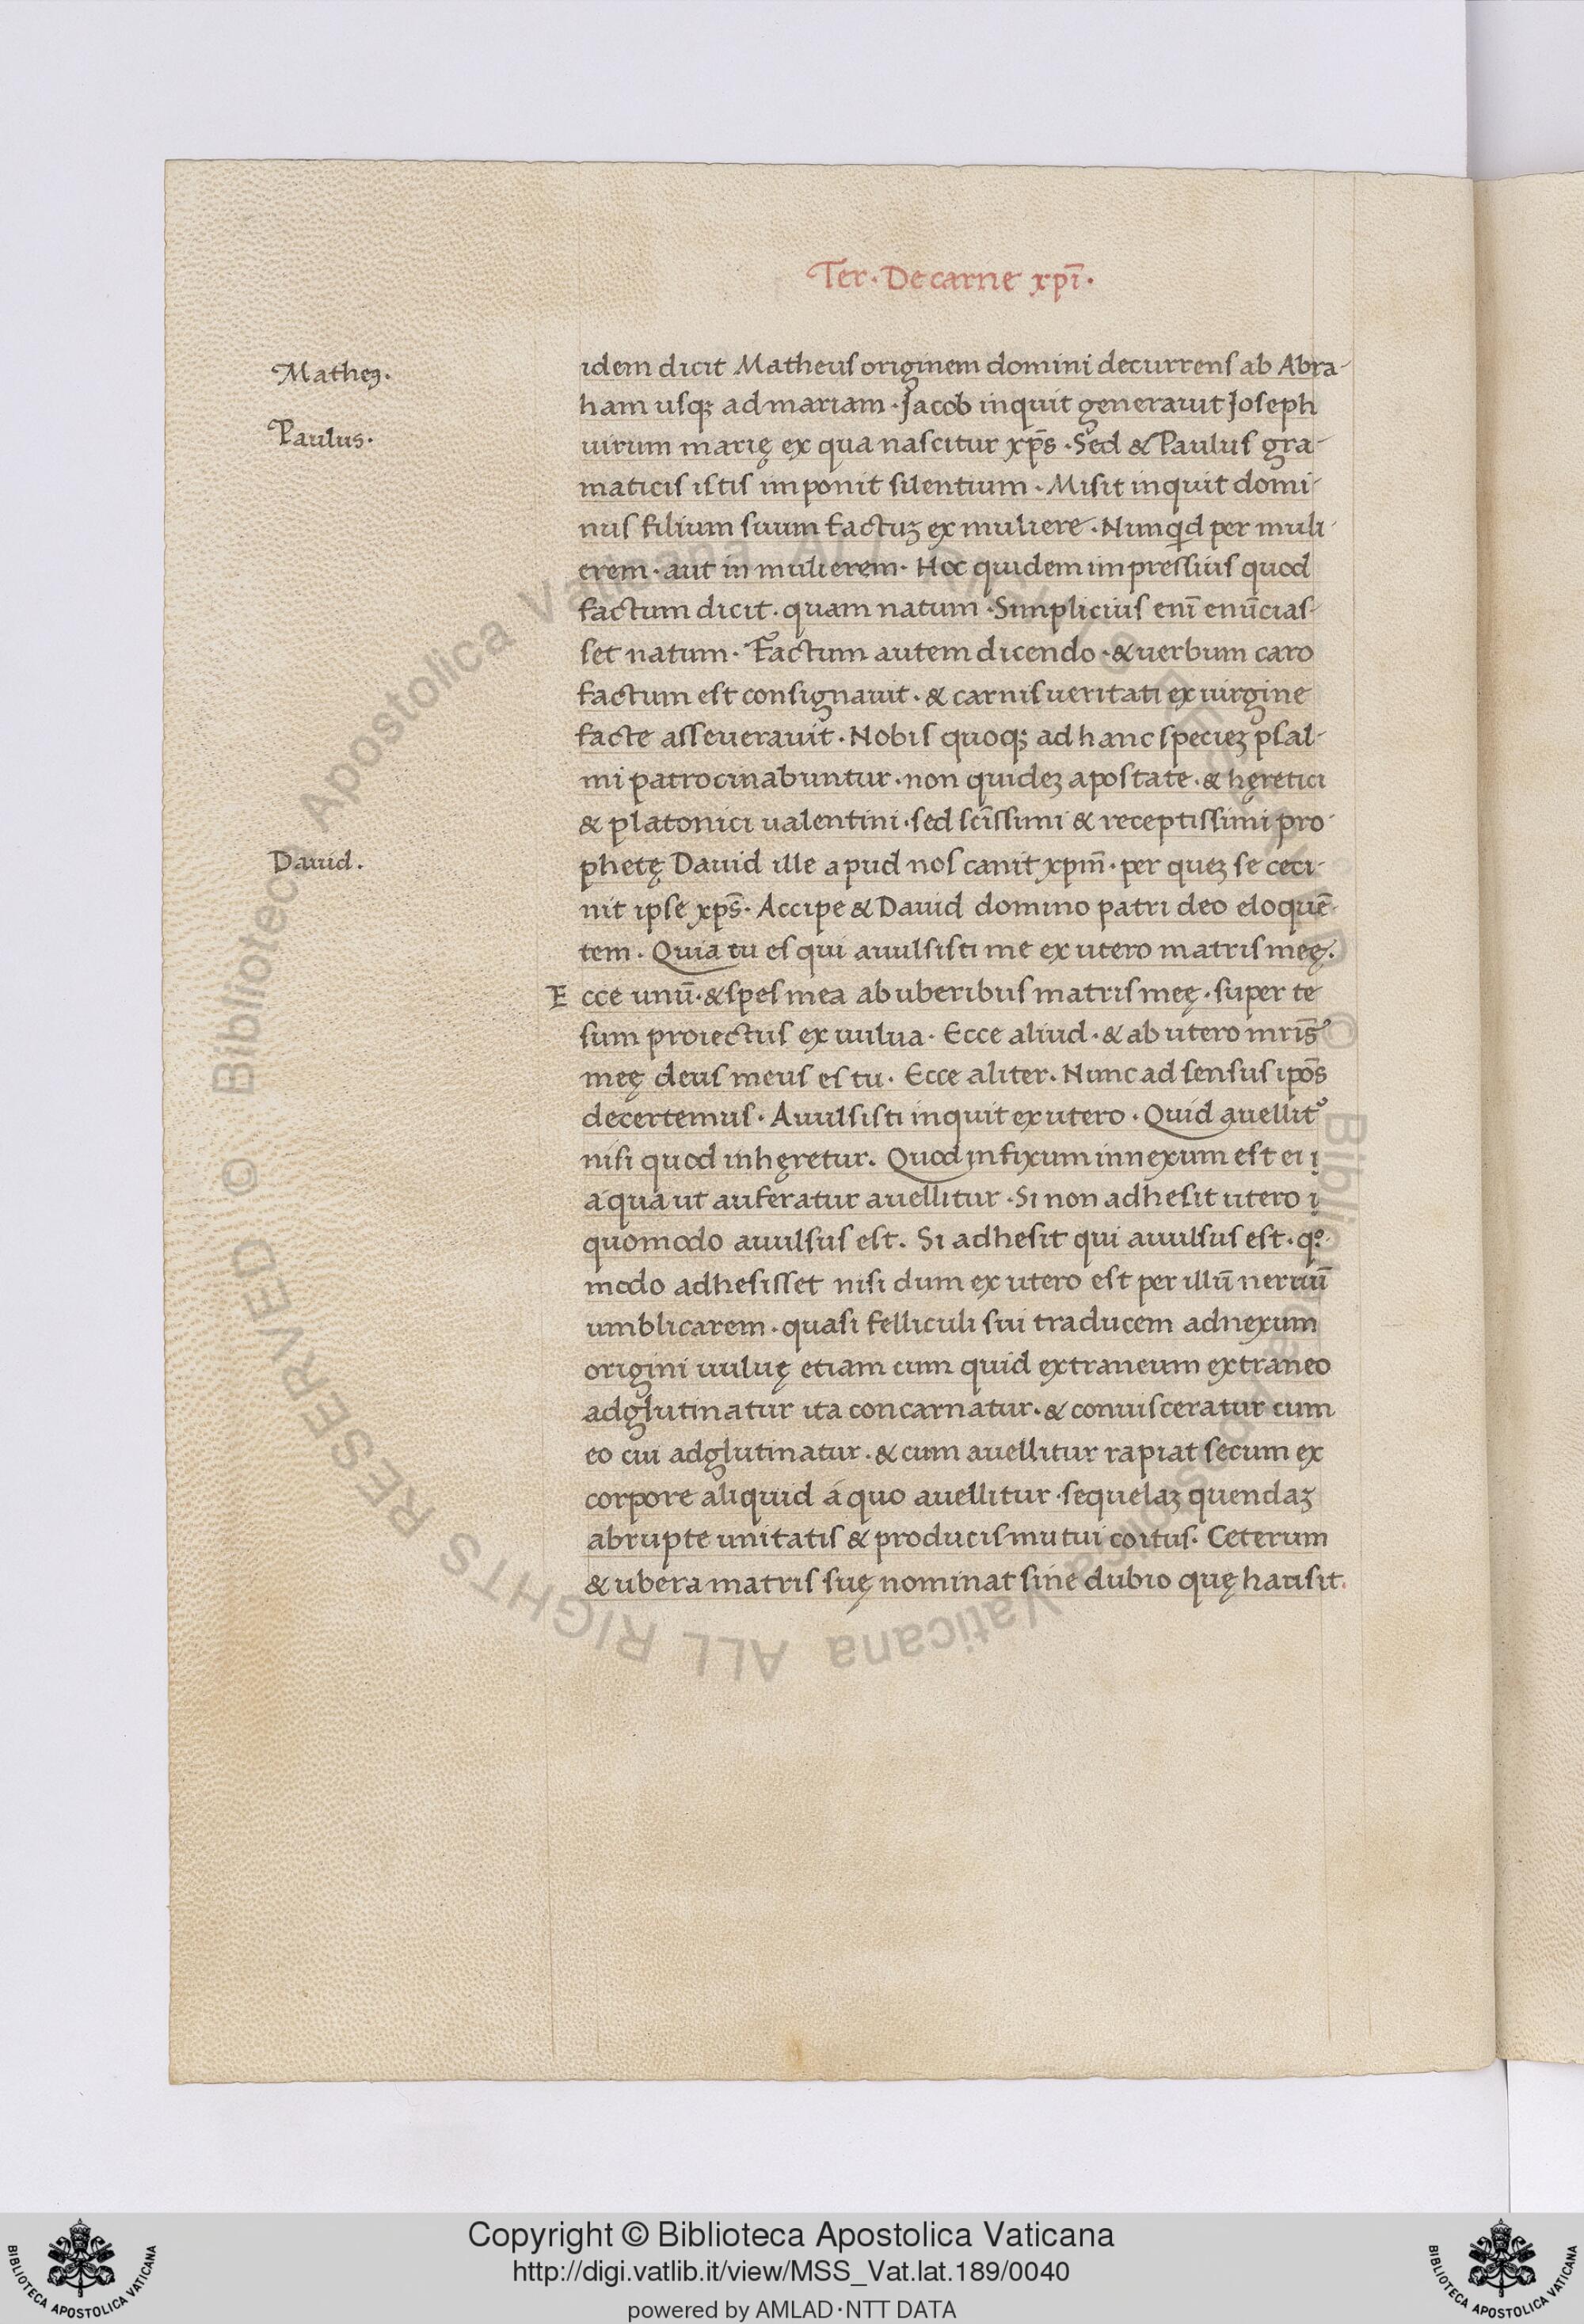 Ter · De carne xpī ·
Matheꝯ ·
idem dicit Matheus originem domini decurrens ab Abra-
ham usqꝫ ad mariam · Jacob inquit generauit Joseph
Paulus ·
uirum marię ex qua nascitur xp̄s · Sed & Paulus gra-
maticis istis imponit silentium · Misit inquit domi-
nus filium suum factuꝫ ex muliere · Nunqͥd per muli-
erem · aut in mulierem · Hoc quidem impressius quod
factum dicit · quam natum · Simplicius enī enūcias-
set natum · Factum autem dicendo · & uerbum caro
factum est consignauit · & carnis ueritati ex uirgine
facte asseuerauit · Nobis quoqꝫ ad hanc specieꝫ psal-
mi patrocinabuntur · non quideꝫ apostate · & hęretici
& platonici ualentini · sed scīssimi & receptissimi pro-
Dauid .
phetę Dauid ille apud nos canit xpm̄ · per queꝫ se ceci-
nit ipse xps̄ · Accipe & Dauid domino patri deo eloquē-
tem · Quia tu es qui auulsisti me ex utero matris meę.
Ecce unū · & spes mea ab uberibus matris meę · super te
sum proiectus ex uulua · Ecce aliud · & ab utero mr̄is
meę deus meus es tu · Ecce aliter · Nunc ad sensus ipōs
decertemus · Auulsisti inquit ex utero · Quid auellit᷒
nisi quod inhęretur . Quod infixum innexum est ei ı̣
a qua ut auferatur auellitur · Si non adhesit utero ı̣
quomodo auulsus est . Si adhesit qui auulsus est · qͦ-
modo adhesisset nisi dum ex utero est per illū neruū
umblicarem · quasi felliculi sui traducem adnexum
origini uuluę etiam cum quid extraneum extraneo
adglutinatur ita concarnatur · & conuisceratur cum
eo cui adglutinatur · & cum auellitur rapiat secum ex
corpore aliquid á quo auellitur · sequelaꝫ quendaꝫ
abrupte unitatis & producis mutui coitus · Ceterum
& ubera matris suę nominat sine dubio quę hausit.
Copyright © Biblioteca Apostolica Vaticana
http://digi.vatlib.it/view/MSS_Vat.lat.189/0040
powered by AMLAD·NTT DATA